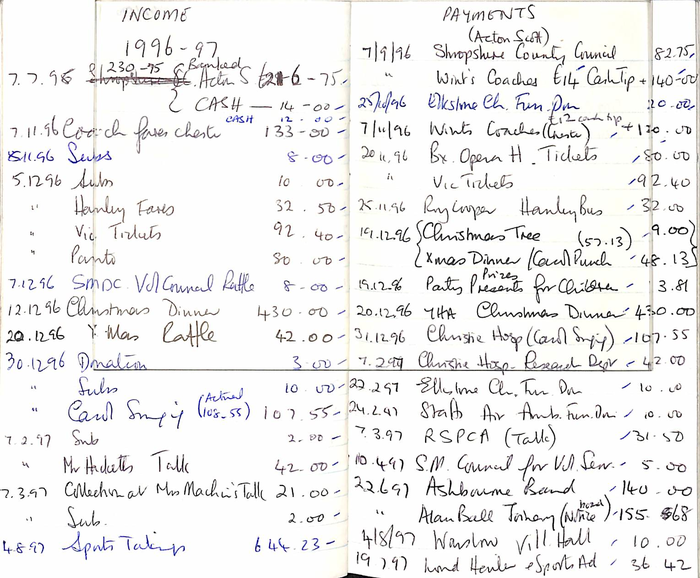 INCOME
1996-97
230-75 Banked
7.7.96 Acton S 216-75
CASH — 14-00
CASH 12.00
7.11.96 Coach fares chester 133-00
15.11.96 Subs 8.00
5.12.96 Subs 10 00
" Hanley Fares 32.50
" Vic. Tickets 92.40
" Panto 80.00
7.12.96 SMDC. Vol Council Raffle 8-00
12.12.96 Christmas Dinner 430.00
20.12.96 X Mas Raffle 42.00
30.12.96 Donation 3.00
" Subs 10.00
" Carol Singing (Actual 108.55) 107.55
7.2.97 Sub 2.00
" Mr Hicketts Talk 42.00
7.3.97 Collection at Mrs Machin's Talk 21.00
" Sub. 2.00
4.8.97 Sports Takings 644.23
PAYMENTS
(Acton Scott)
7/9/96 Shropshire County Council 82.75
" Wint's Coaches £14 Cash Tip + 140-00
25/10/96 Elkstone Ch. Fun. Don 20.00
£12 cash tip
7/11/96 Wints Coaches (Chester) + 120.00
20.11.96 Bx. Opera H. Tickets 80.00
" Vic Tickets 92.40
25.11.96 Roy Cooper Hanley Bus 32.00
19.12.96 Christmas Tree (57.13) 9.00
Xmas Dinner / Carol Punch 48.13
Prizes
19.12.96 Party Presents for Children 3.81
20.12.96 YHA Christmas Dinner 430.00
31.12.96 Christie Hosp (Carol Singing) 107.55
7.2.97 Christie Hosp. Research Dept 42.00
22.2.97 Elkstone Ch. Fun. Don 10.00
24.2.97 Staffs Air Amb. Fun. Don 10.00
7.3.97 RSPCA (Talk) 31.50
10.4.97 S.M. Council for Vol. Serv. 5.00
22.6.97 Ashbourne Band 140.00
" Alan Ball Joinery (Notice board) 155.68
4/8/97 Warslow Vill. Hall 10.00
19 7 97 Sports Ad 36 42